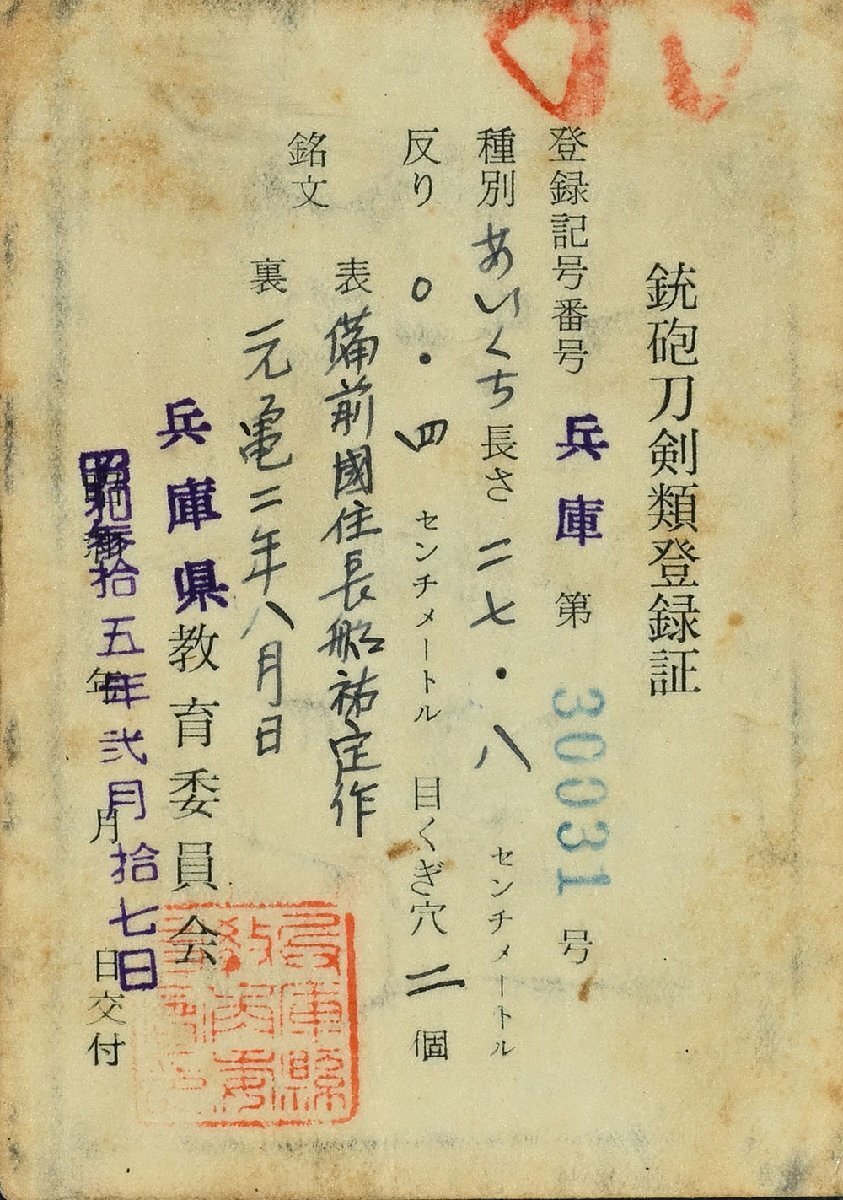 銃砲刀剣類登録証
登録記号番号 兵庫 第 30031 号
種別 あいくち 長さ 二七・八 センチメートル
反り 〇・四 センチメートル 目くぎ穴 二 個
銘文
表 備前國住長船祐定作
裏 元亀二年八月日
兵庫県教育委員会
昭和参拾五年弐月拾七日
昭和 年 月 日交付